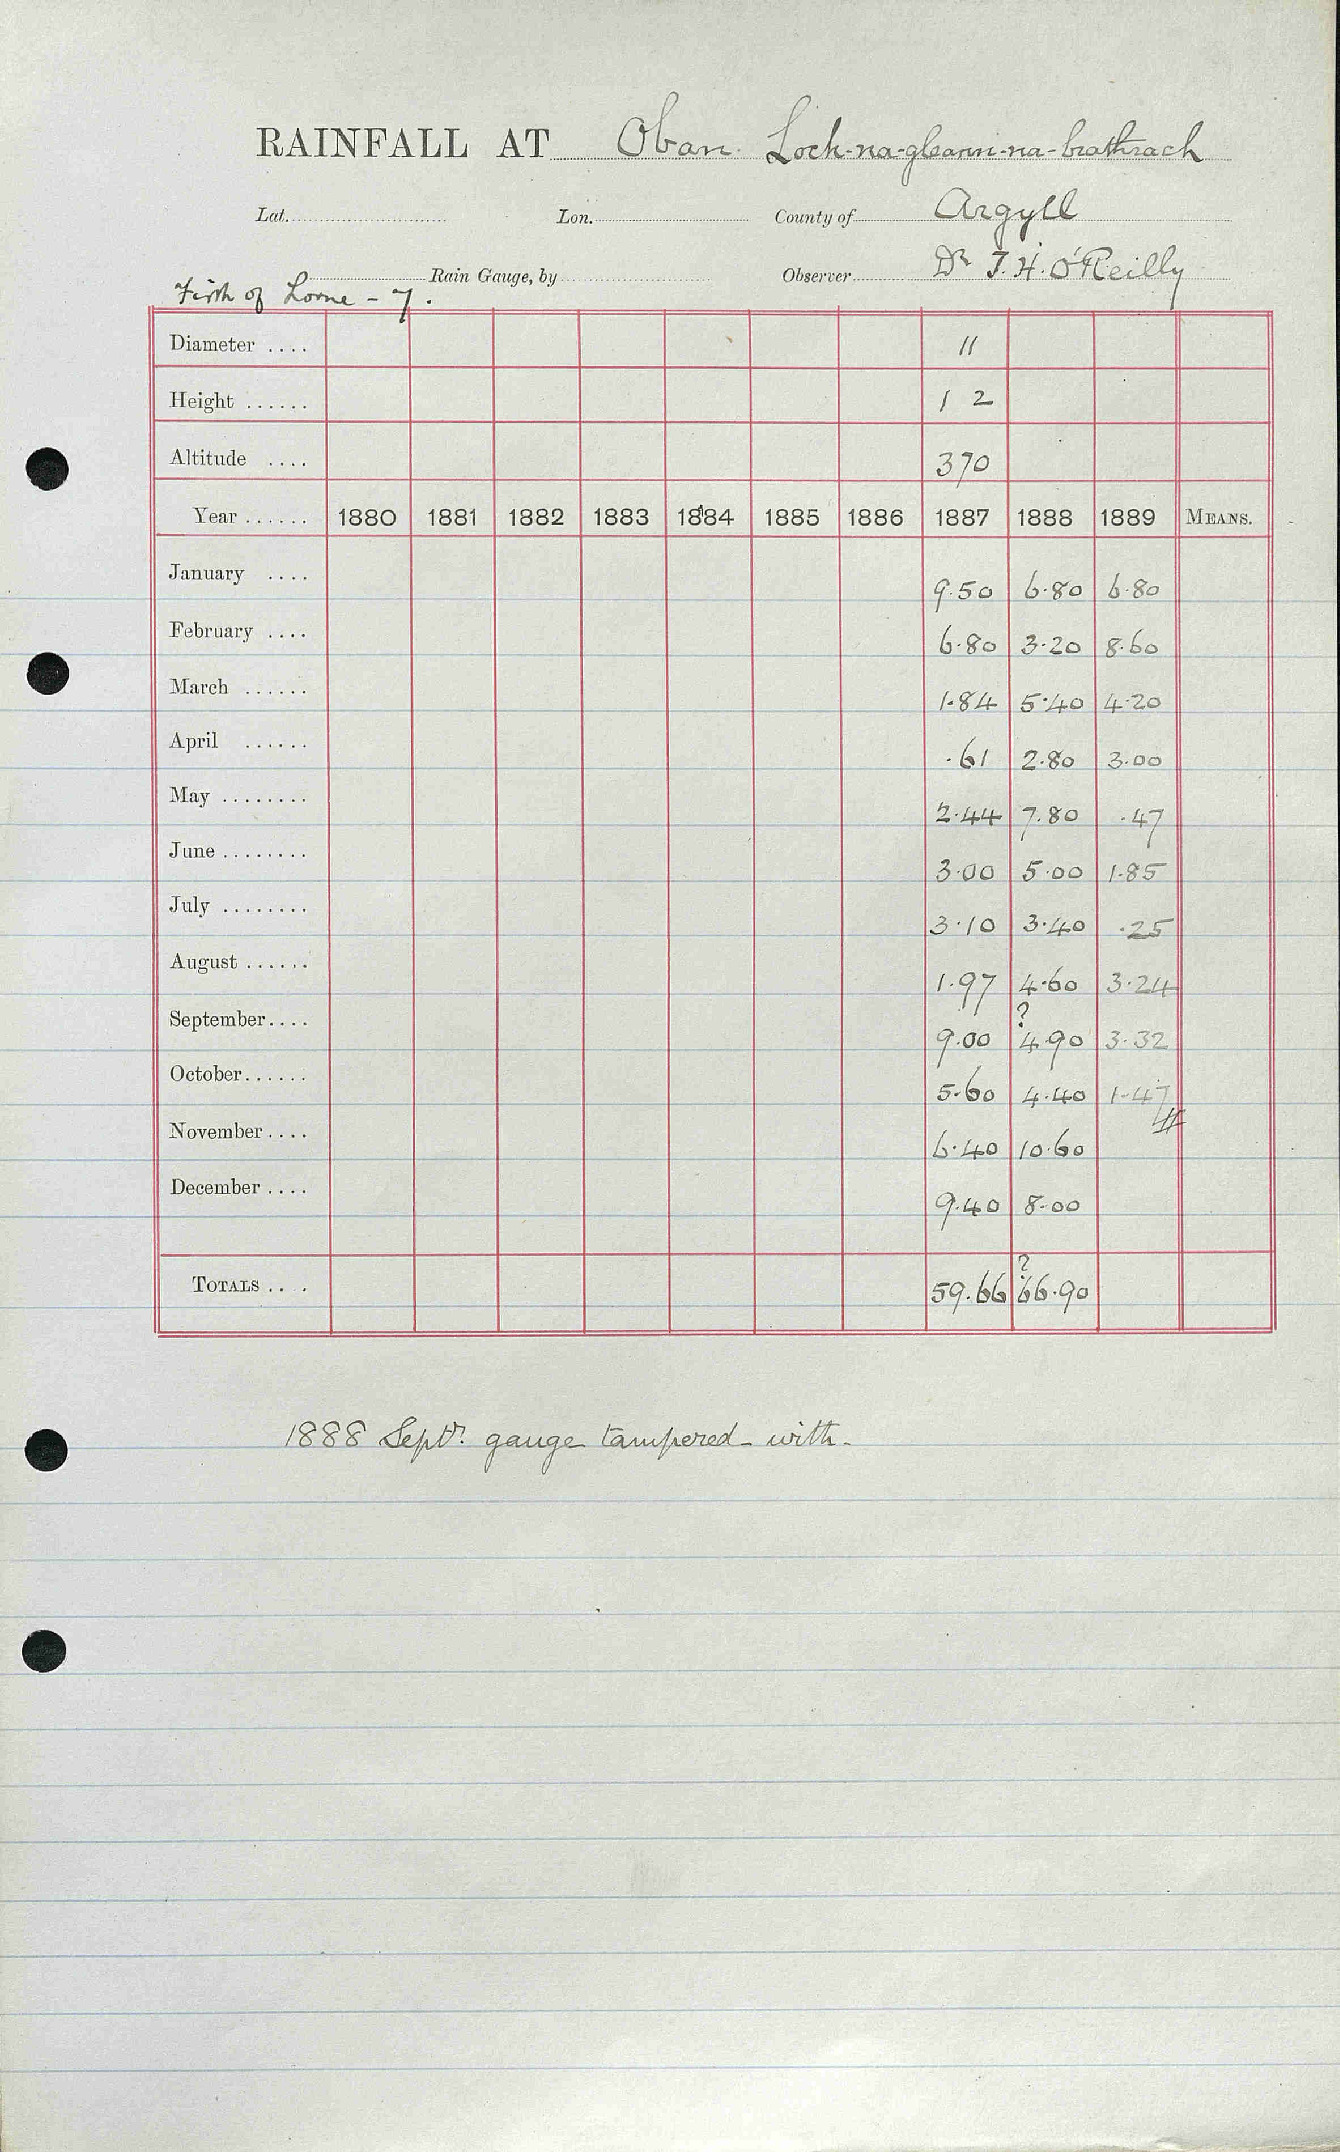 RAINFALL AT Oban. Loch-na-gleann-na-brathrach
Lat. Lon. County of Argyll
Rain Gauge, by Observer Dr T. H. O'Reilly
Firth of Lorne - 7.
Diameter .... 11
Height ...... 1 2
Altitude .... 370
Year ...... 1880 1881 1882 1883 1884 1885 1886 1887 1888 1889 MEANS.
January .... 9.50 6.80 6.80
February .... 6.80 3.20 8.60
March ...... 1.84 5.40 4.20
April ...... .61 2.80 3.00
May ........ 2.44 7.80 .47
June ........ 3.00 5.00 1.85
July ........ 3.10 3.40 .25
August ...... 1.97 4.60 3.24
September.... 9.00 ? 4.90 3.32
October...... 5.60 4.40 1.47
November .... 6.40 10.60
December .... 9.40 8.00
TOTALS .... 59.66 ? 66.90
1888 Septr. gauge tampered with.